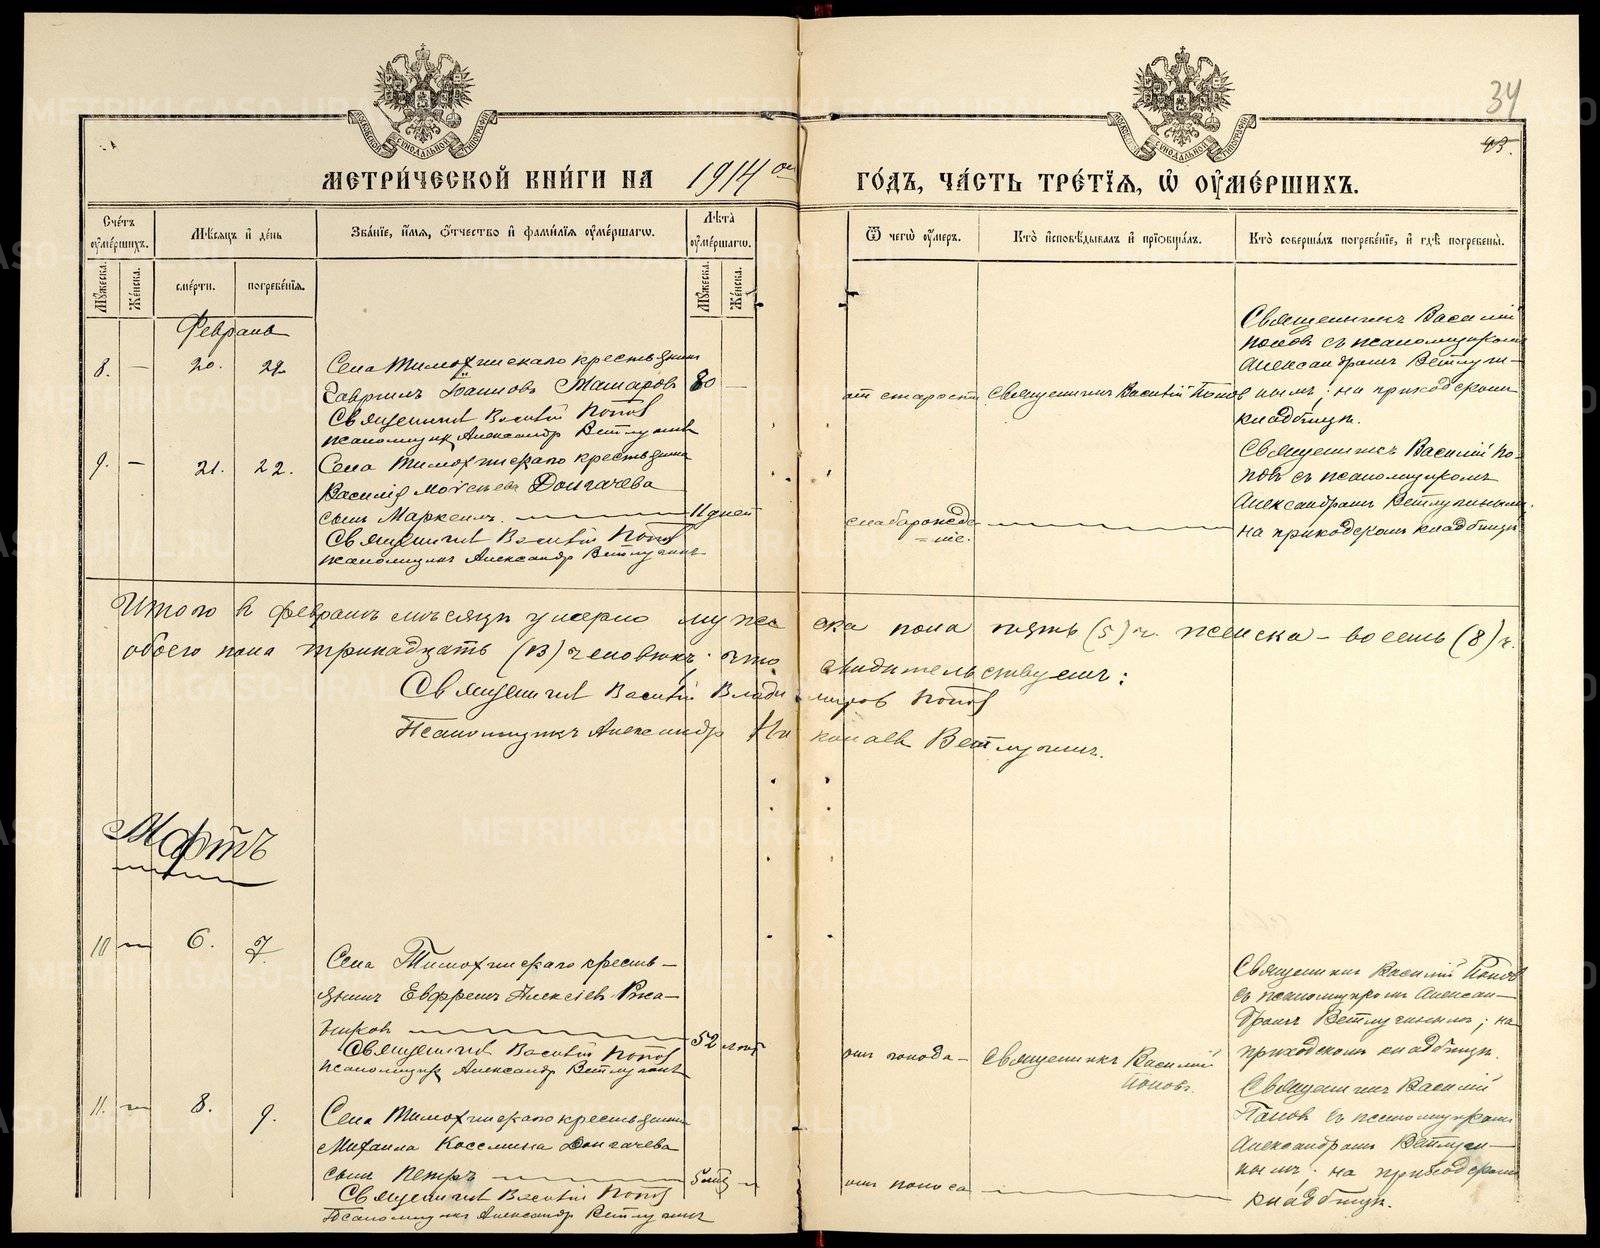 34
43.
МЕТРИ́ЧЕСКОЙ КНИ́ГИ НА 1914 ый ГО́ДЪ, ЧА́СТЬ ТРЕ́ТІѦ, Ѡ ОУ҆МЕ́РШИХЪ.
Сче́тъ оу҆ме́ршихъ.
Мѣ́сяцъ и де́нь
Зва́ніе, и҆́мя, ѻ҆́тчество и҆ фами́лія оу҆ме́ршагѡ.
Лѣ́та оу҆ме́ршагѡ.
Ѿ чегѡ̀ оу҆́меръ.
Кто̀ и҆сповѣ́дывалъ и҆ пріѡбща́лъ.
Кто̀ соверша́лъ погребе́ніе, и҆ гдѣ̀ погребены̀.
Му́жеска.
Же́нска.
сме́рти.
погребе́нія.
Му́жеска.
Же́нска.
Февраль
8. — 20. 22.
Села Тимохинскаго крестьянинъ
Гавріилъ Іоанновъ 80 —
Священникъ Василій Попов
псаломщикъ Александр Ветлугинъ
от старости
Священникъ Василій Попов
Священникъ Василій
Попов съ псаломщиком
Александромъ Ветлуги-
нымъ; на приходском
кладбищѣ.
9. — 21. 22.
Села Тимохинскаго крестьянина
Василія Моѵсеева Долгачева
сынъ Маркеллъ. 11 дней
Священникъ Василій Попов
псаломщикъ Александр Ветлугинъ
слаборожде-
=ніе.
Священникъ Василій По-
повъ съ псаломщиком
Александромъ Ветлугинымъ
на приходском кладбищѣ
Итого в февралѣ мѣсяцѣ умерло мужес ска пола пять (5) ч. женска – восемь (8) ч.
обоего пола тринадцать (13) человѣкъ: что свидительствуемъ:
Священникъ Василій Влади миров Попов
Псаломщикъ Александр Ни колаев Ветлугинъ.
Мартъ
10 — 6. 7.
Села Тимохинскаго кресть-
янинъ Евфремъ Алексіев
52 лѣт
Священникъ Василій Попов
псаломщикъ Александр Ветлугинъ
Священникъ Василій
Поповъ.
Священникъ Василій Попов
съ псаломщиком Алексан-
дромъ Ветлугинымъ; на
приходском кладбищѣ.
11. — 8. 9.
Села Тимохинскаго крестьянина
Михаила Коссмина Долгачева
сынъ Петръ 5 мѣс —
Священникъ Василій Попов
Псаломщикъ Александр Ветлугинъ
отъ поноса
Священникъ Василій
Попов съ псаломщиком
Александромъ Ветлуги-
нымъ; на приходском
кладбищѣ.
METRIKI.GASO-URAL.RU